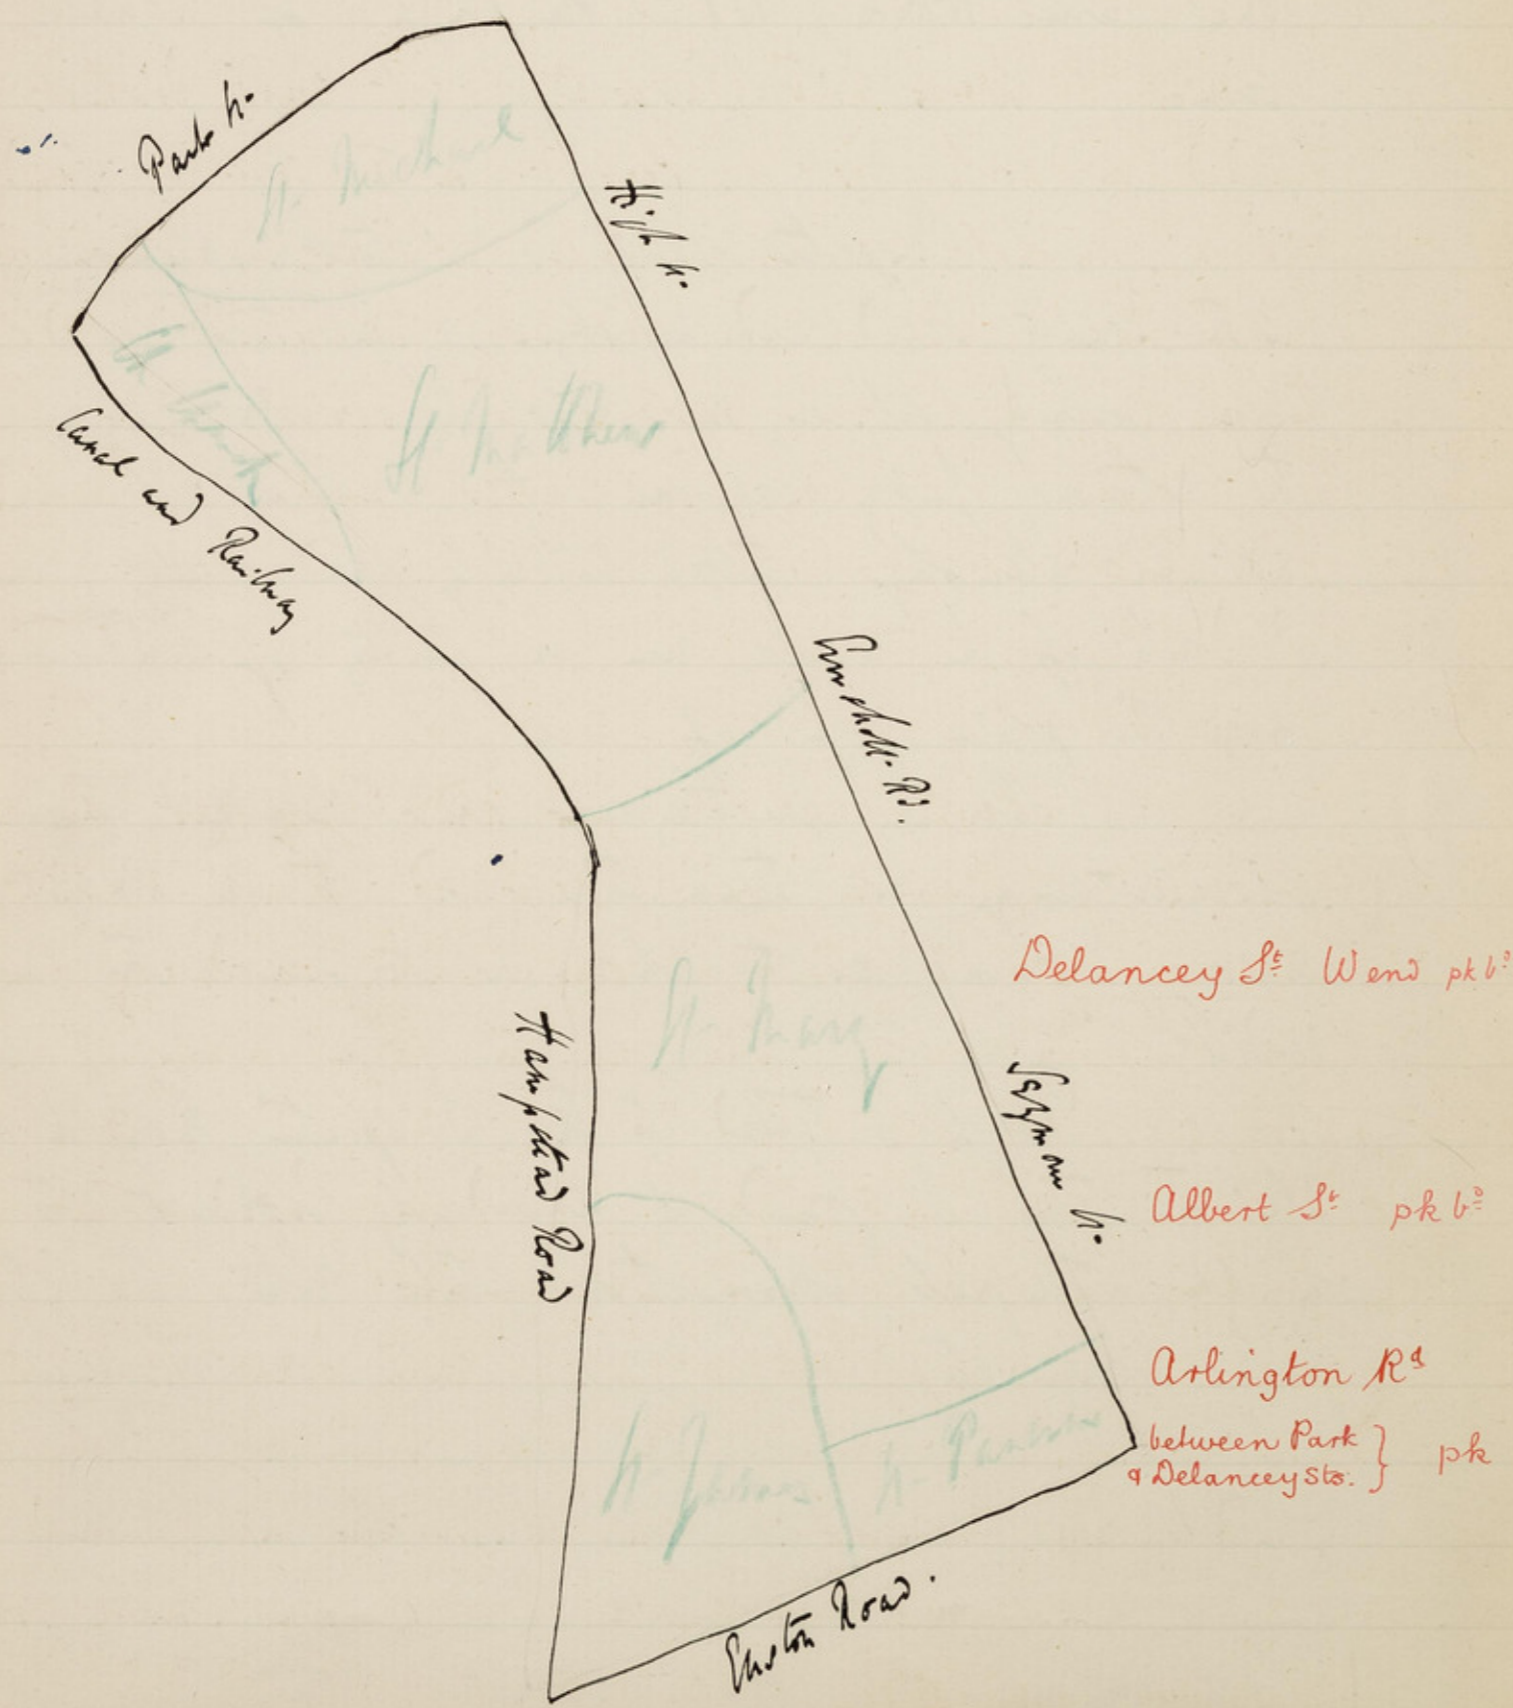 Park St.
St. Michael
High St.
St Mark
St Matthew
Canal and Railway
Eversholt. Rd.
Delancey St W end pk bd
St. Mary
Hampstead Road
Seymour St.
Albert St pk bd
Arlington Rd
between Park
& Delancey Sts. } pk
St James
St. Pancras
Euston Road.